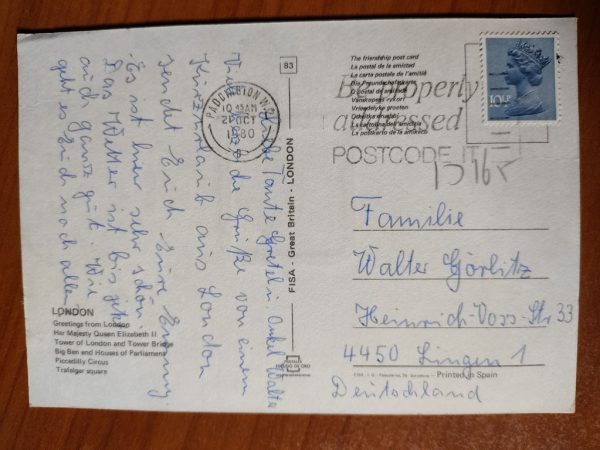 LONDON
Greetings from London
Her Majesty Queen Elizabeth II
Tower of London and Tower Bridge
Big Ben and Houses of Parliament
Piccadilly Circus
Trafalgar square
Tante Gretel u. Onkel Walter
Viele Grüße von einem
Kurzurlaub aus London
sendet Euch Eure
Es ist hier sehr schön.
Das Wetter ist bis jetzt
auch ganz gut. Wie
geht es Euch noch allen
83
FISA - Great Britain - LONDON
PADDINGTON W.2
10.45AM
OCT
1980
The friendship post card
La postal de la amistad
La carte postale de l'amitié
Die Freundschaftskarte
O postal de amizade
Vänskapens vykort
Vriendelijke groeten
La cartolina dell'amicizia
La postkarto de la amikeco
Be properly
addressed
POSTCODE IT
10½P
Familie
Walter Görlitz
Heinrich-Voss-Str 33
4450 Lingen 1
Deutschland
Printed in Spain